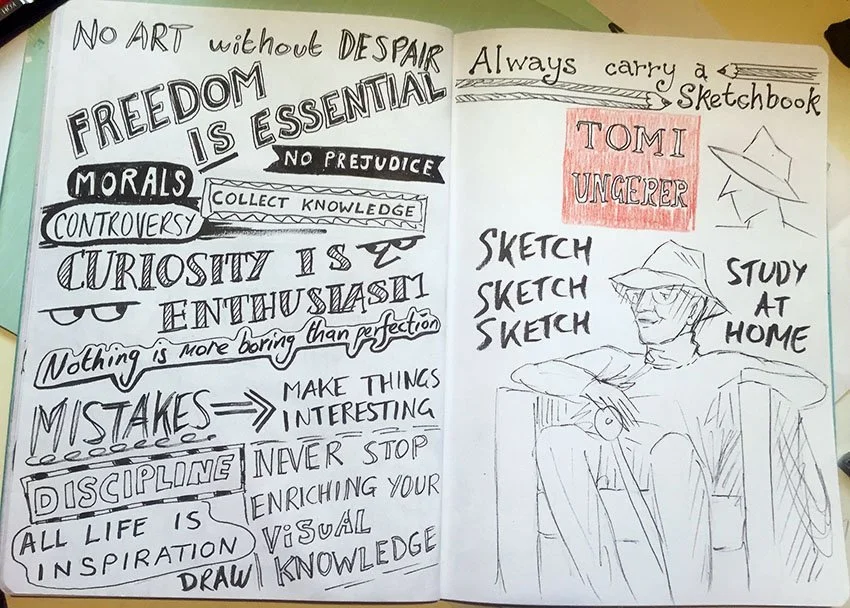 No ART without DESPAIR
FREEDOM
IS ESSENTIAL
NO PREJUDICE
MORALS
COLLECT KNOWLEDGE
CONTROVERSY
CURIOSITY IS
ENTHUSIASM
Nothing is more boring than perfection
MISTAKES
MAKE THINGS
INTERESTING
DISCIPLINE
NEVER STOP
ENRICHING YOUR
ViSUAL
KNOWLEDGE
ALL LIFE IS
INSPIRATION
DRAW
Always carry a
Sketchbook
TOMI
UNGERER
SKETCH
SKETCH
SKETCH
STUDY
AT
HOME